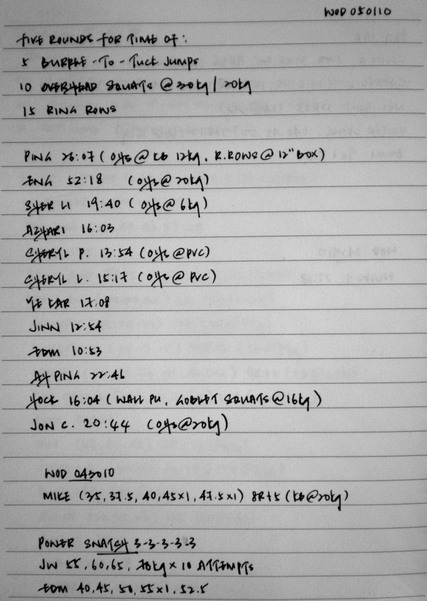 WOD 050110
FIVE ROUNDS FOR TIME OF:
5 BURPEE-TO-TUCK JUMPS
10 OVERHEAD SQUATS @ 30kg/20kg
15 RING ROWS
PING 26:07 (OHS @ KB 12kg, R.ROWS @ 12" BOX)
ENG 52:18 (OHS @ 20kg)
SHER LI 19:40 (OHS @ 6kg)
AZHARI 16:03
CHERYL P. 13:54 (OHS @ PVC)
CHERYL L. 15:17 (OHS @ PVC)
YE KAR 17:08
JINN 12:54
EDM 10:53
AH PING 22:46
HOCK 16:04 (WALL PU, GOBLET SQUATS @ 16kg)
JON C. 20:44 (OHS @ 20kg)
WOD 043010
MIKE (35, 37.5, 40, 45x1, 47.5x1) 8R+5 (KB @ 20kg)
POWER SNATCH 3-3-3-3-3
JW 55, 60, 65, 70kg x 10 ATTEMPTS
EDM 40, 45, 50, 55x1, 52.5